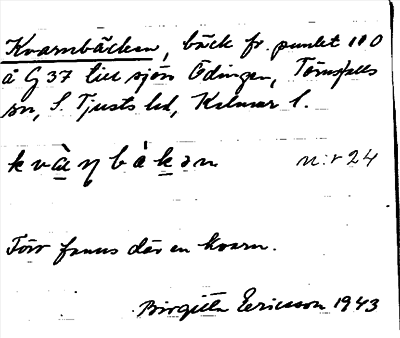 Kvarnbäcken, bäck fr. punkt 110
å G 37 till sjön Ödingen, Törnsfalls
sn, S. Tjusts hd, Kalmar l.
kvàŋbàkən nr 24
Förr fanns där en kvarn.
Birgitta Ericsson 1943